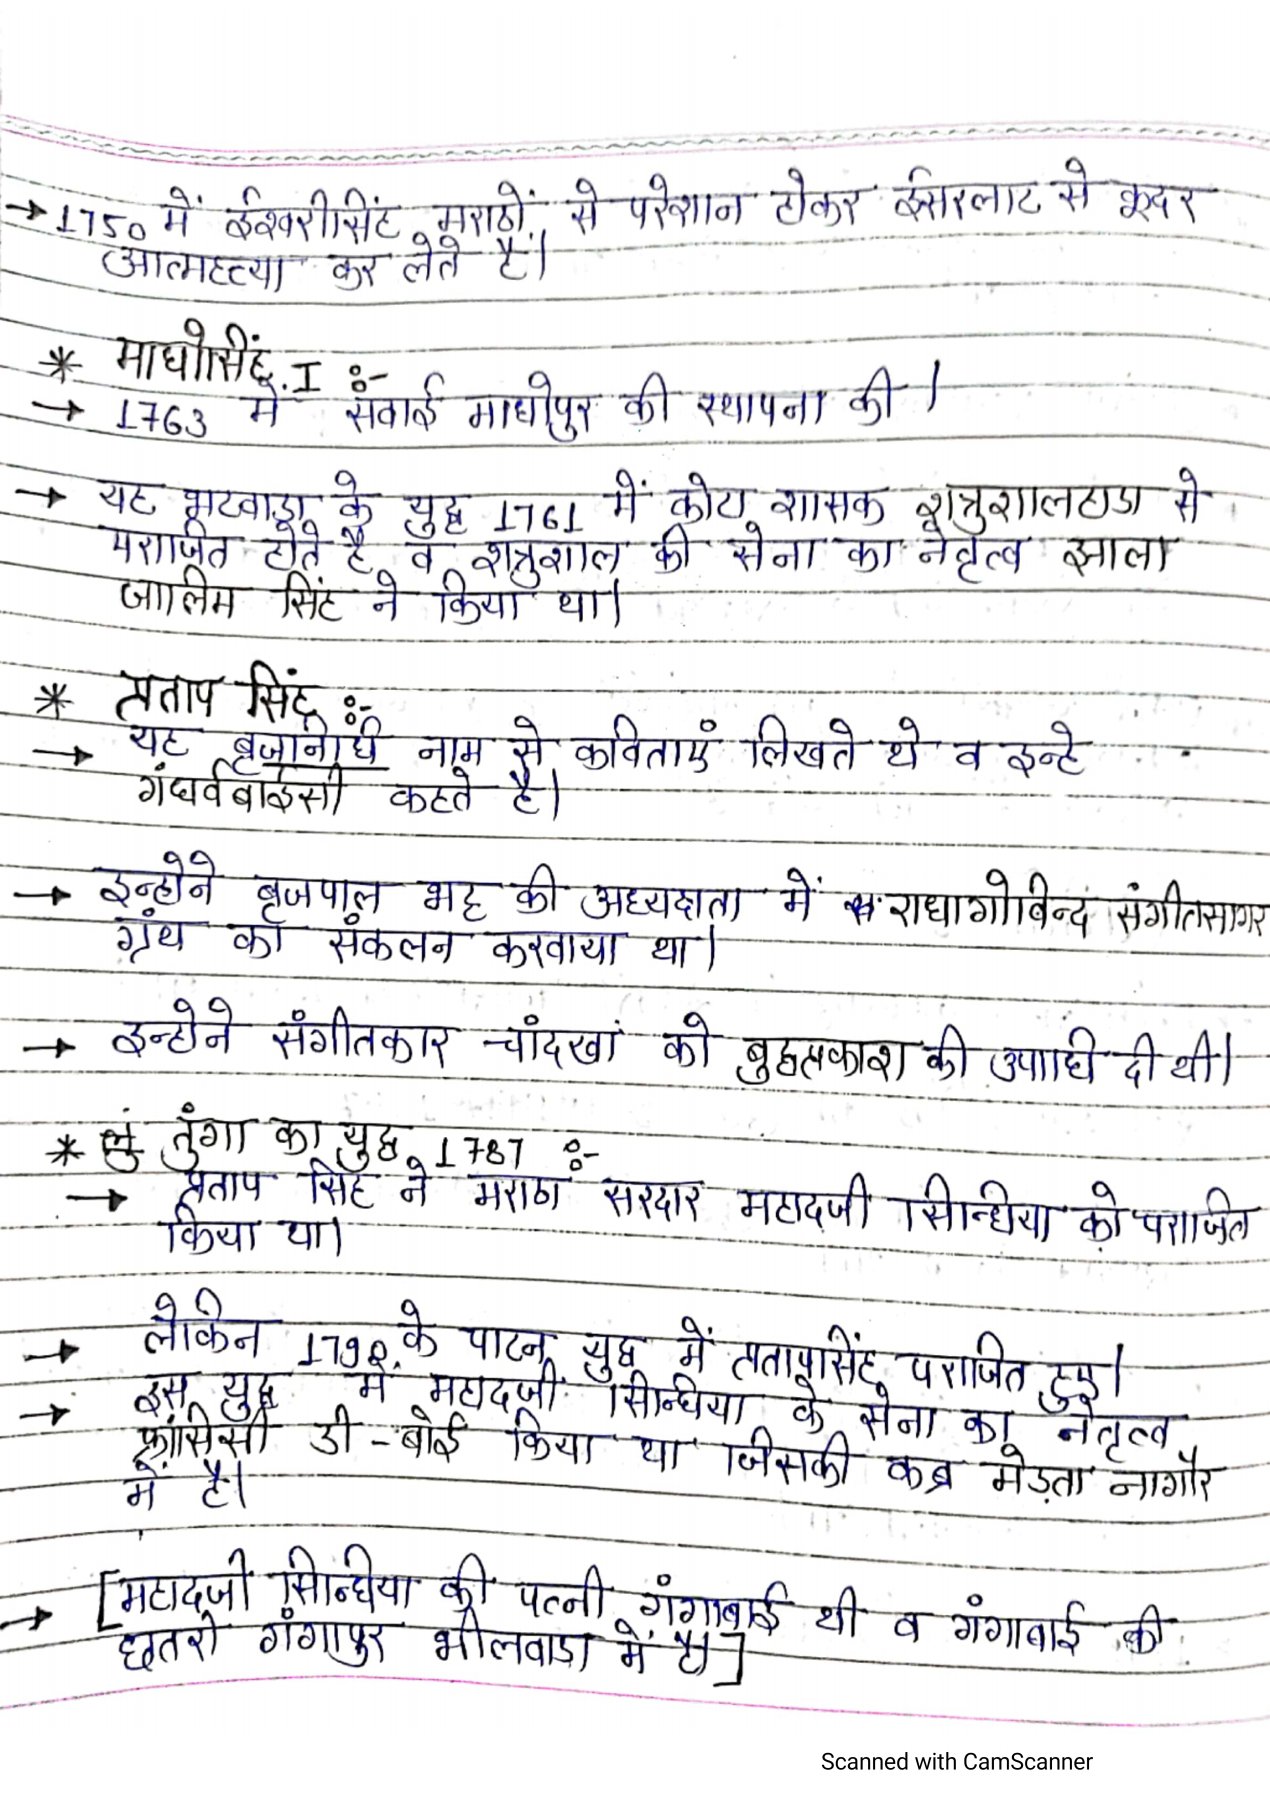 → 1750 में ईश्वरीसिंह मराठों से परेशान होकर ईसरलाट से कूदकर
आत्महत्या कर लेते है।
* माधोसिंह I :-
→ 1763 में सवाई माधोपुर की स्थापना की।
→ यह भटवाड़ा के युद्ध 1761 में कोटा शासक शत्रुशालहाडा से
पराजित होते है व शत्रुशाल की सेना का नेतृत्व झाला
जालिम सिंह ने किया था।
* प्रताप सिंह :-
→ यह बृजनिधि नाम से कविताएं लिखते थे व इन्हे
गंधर्वबाईसी कहते है।
→ इन्होने बृजपाल भट्ट की अध्यक्षता में राधागोविन्द संगीतसागर
ग्रंथ का संकलन करवाया था।
→ इन्होने संगीतकार चांदखां को बुद्धप्रकाश की उपाधि दी थी।
* तुंगा का युद्ध 1787 :-
→ प्रताप सिंह ने मराठा सरदार महादजी सिन्धिया को पराजित
किया था।
→ लेकिन 1790 के पाटन युद्ध में प्रतापसिंह पराजित हुए।
→ इस युद्ध में महादजी सिन्धिया के सेना का नेतृत्व
फ्रांसिसी डी-बोई किया था जिसकी कब्र मेड़ता नागौर
में है।
→ [महादजी सिन्धिया की पत्नी गंगाबाई थी व गंगाबाई की
छतरी गंगापुर भीलवाडा में है।]
Scanned with CamScanner